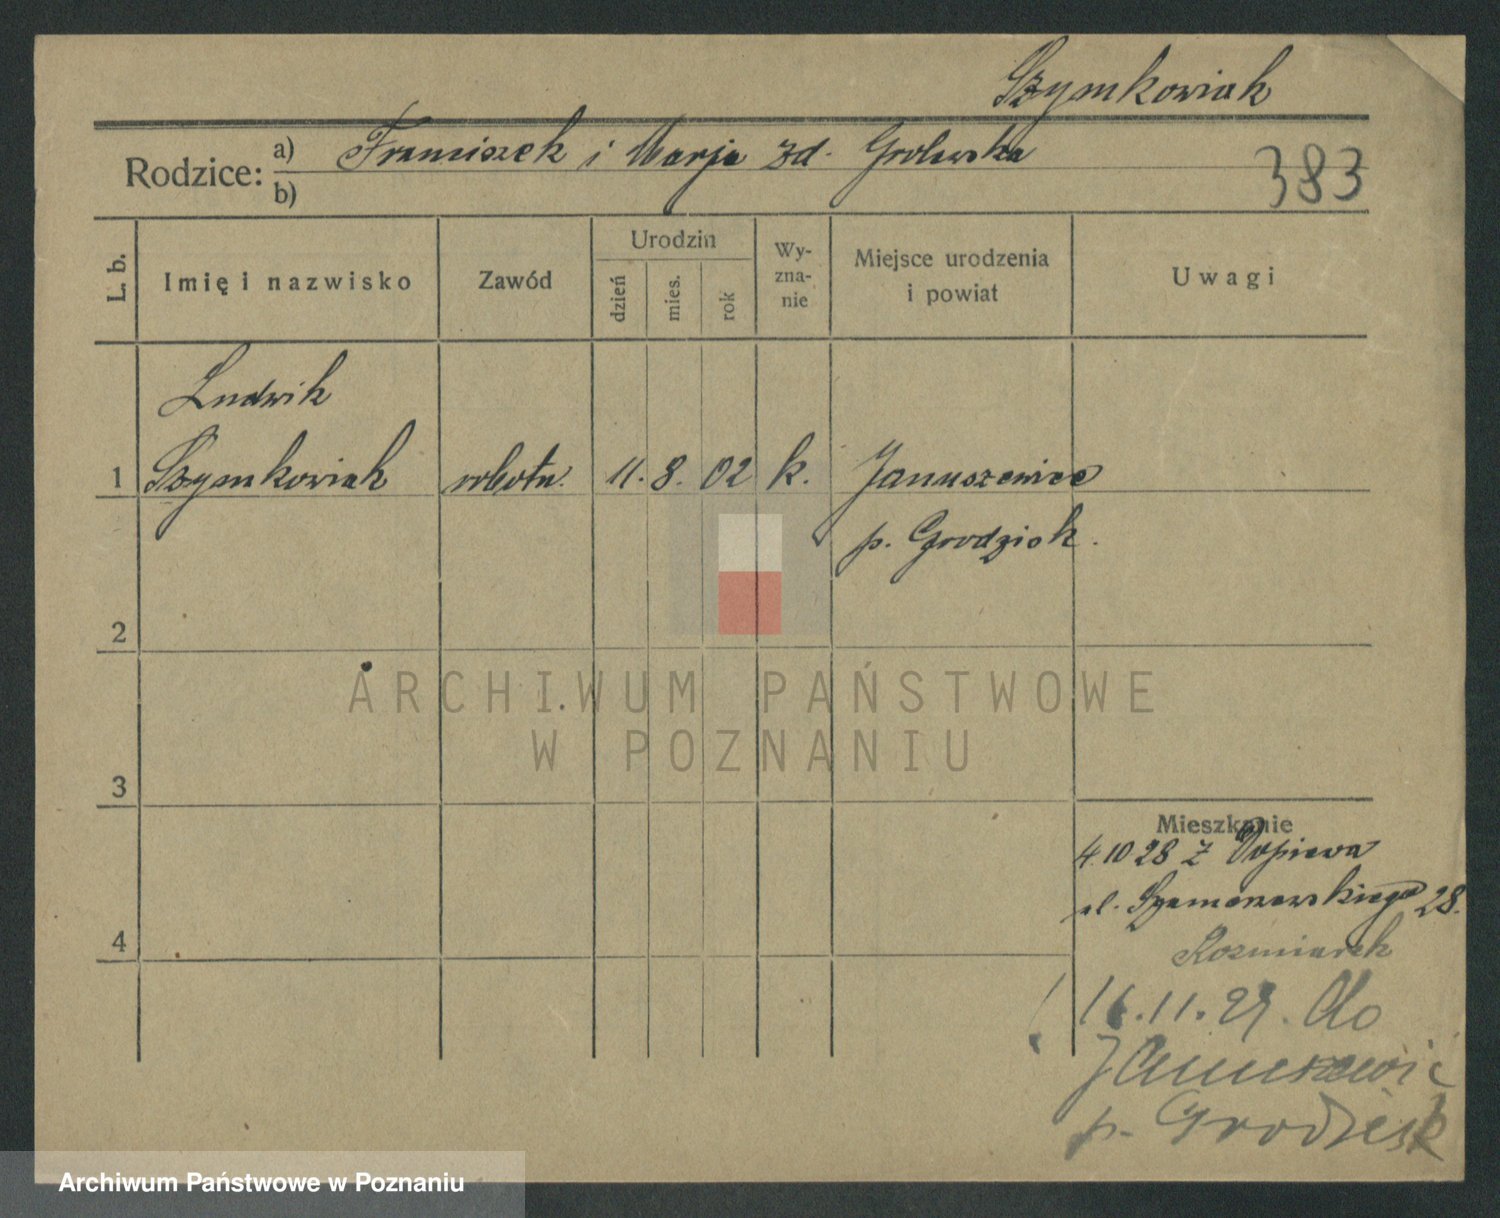 Szymkowiak
Rodzice: a) Franciszek i Marja zd. Grolewska
b)
383
L. b.
Imię i nazwisko
Zawód
Urodzin
dzień
mies.
rok
Wy-
zna-
nie
Miejsce urodzenia
i powiat
Uwagi
Ludwik
1 Szymkowiak robotn. 11. 8. 02 k. Januszewice
p. Grodzisk.
2
ARCHIWUM PAŃSTWOWE
W POZNANIU
3
Mieszkanie
4.10 28 z Dopiewa
ul. Szamarzewskiego 28.
Kozmiarek
4
16.11.29. do
Januszewic
p. Grodzisk
Archiwum Państwowe w Poznaniu